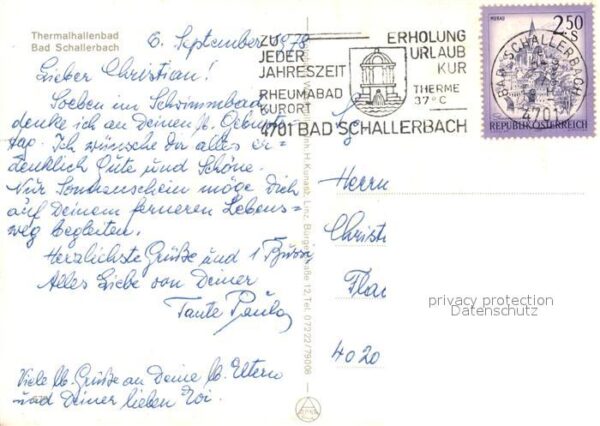 Thermalhallenbad
Bad Schallerbach
6. September 1978
Lieber Christian!
Soeben im Schwimmbad,
denke ich an Deinen lb. Geburts=
tag. Ich wünsche Dir alles er=
denklich Gute und Schöne.
Nur Sonnenschein möge Dich
auf Deinem ferneren Lebens=
weg begleiten.
Herzlichste Grüße und 1 Bussi
Alles Liebe von Deiner
Tante Paula
Viele lb. Grüße an Deine lb. Eltern
und Deiner lieben
ZU
JEDER
JAHRESZEIT
RHEUMABAD
KURORT
ERHOLUNG
URLAUB
KUR
THERME
37°C
4701 BAD SCHALLERBACH
MURAU
2.50
S
REPUBLIK ÖSTERREICH
BAD SCHALLERBACH
4701
H. Kunath, Linz, Burgerstraße 12, Tel. 07222/79006
Herrn
Christi
4020
privacy protection
Datenschutz